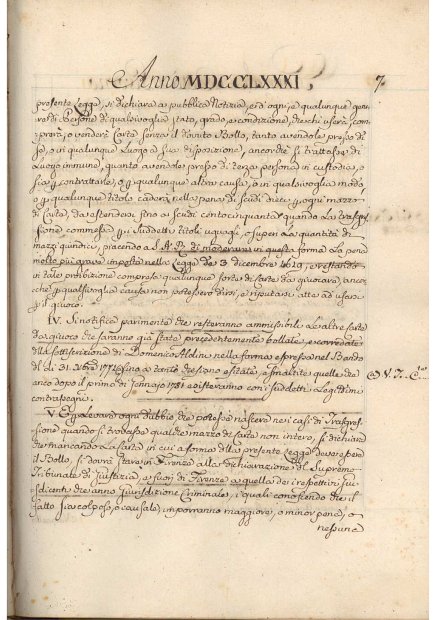 Anno MDCCLXXXI. 7.
presente Legge, si dichiara a pubblica Notizia, ed ogni, e qualunque gene-
re di Persone di qualsivoglia stato, grado, e condizione, che chi userà, com-
prerà, o venderà Carte senza il dovuto Bollo, tanto avendole presso di
se, o in qualunque Luogo a sua disposizione, ancorchè si trattasse di
Luogo immune, quanto avendole presso di terza persona in custodia, o
sia p contrattarle, o p qualunque altra causa, o in qualsivoglia modo,
o p qualunque titolo caderà nella pena di scudi dieci p ogni mazzo
di Carte, da estendersi sino ai scudi centocinquanta quando la trasgres-
sione commessa p i suddetti titoli uguagli, o superi la quantità di
mazzi quindici, piacendo a S. A. R. di moderare in questa forma le pene
molto più gravi imposte nella Legge de 3 dicembre 1619, e restando
in tale proibizione comprese qualunque sorte di Carte da giuocare, ancor-
chè p qualsivoglia causa non potessero dirsi, e reputarsi atte ad usare
p il giuoco.
IV. Si notifica parimente che resteranno ammissibili le altre Carte
da giuoco che saranno già state precedentemente bollate, e corredate
della sottoscrizione di Domenico Aldini nella forma espressa nel Bando
del dì 31. Nov.re 1776 fino a tanto che sieno esitate, e smaltite quelle che
anco dopo il primo di Gennajo 1781 esisteranno con i suddetti Legittimi
contrassegni.
V. E p levare ogni dubbio che potesse nascere nei casi di Trasgres-
sione quando si trovasse qualche mazzo di Carte non intero, si dichiara
che mancando la Carta in cui a forma della presente Legge deve essere
il Bollo, si dovrà stare in Firenze alla dichiarazione del Supremo
Tribunale di Giustizia, e fuori di Firenze a quella dei respettivi Giu-
sdicenti che anno Giurisdizione Criminale, i quali conoscendo che il
fatto sia colposo, o causale, imporranno maggiore, o minor pena, o
nessuna
V. T. C.